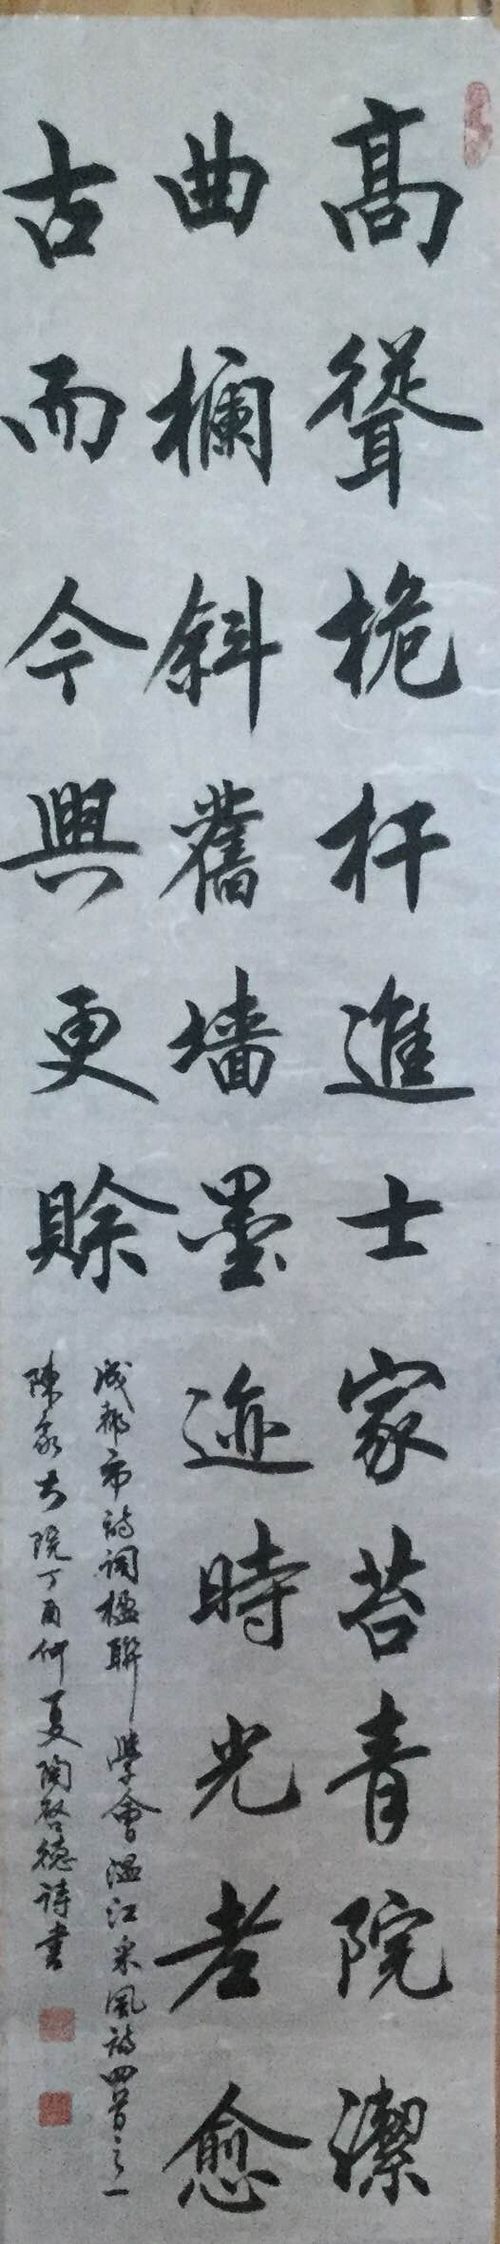 高聳桅杆進士家苔青院潔
曲欄斜舊墙墨迹時光老愈
古而今興更賒
成都市詩詞楹聯學會温江采風詩四首之一
陳家大院丁酉仲夏陶啓德詩書